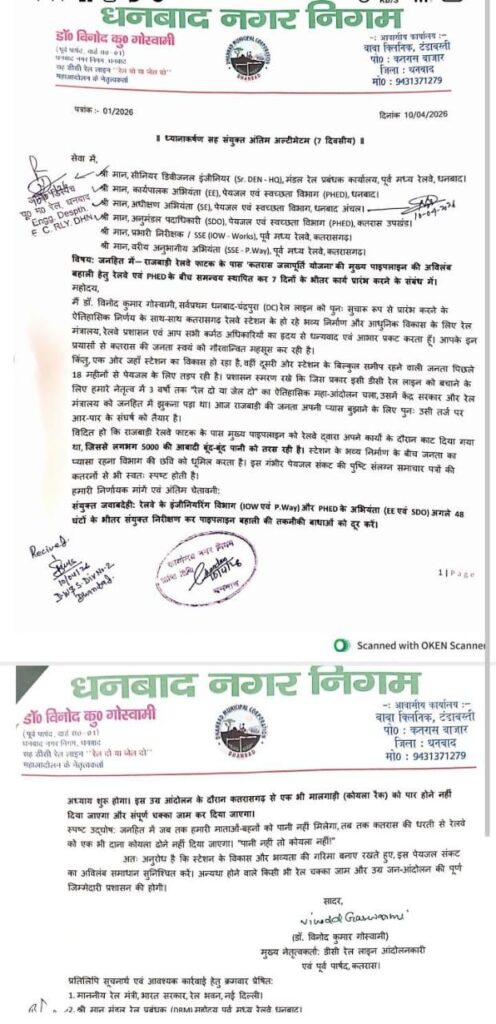 धनबाद नगर निगम
डॉ० विनोद कु० गोस्वामी
(पूर्व पार्षद, वार्ड सं०-01)
धनबाद नगर निगम, धनबाद
सह डीसी रेल लाइन "रेल दो या जेल दो"
महाआंदोलन के नेतृत्वकर्ता
DHANBAD MUNICIPAL CORPORATION
DHANBAD
-: आवासीय कार्यालय :-
बाबा क्लिनिक, टंडाबस्ती
पो० : कतरास बाजार
जिला : धनबाद
मो० : 9431371279
पत्रांक :- 01/2026
दिनांक 10/04/2026
॥ ध्यानाकर्षण सह संयुक्त अंतिम अल्टीमेटम (7 दिवसीय) ॥
सेवा में,
श्री मान, सीनियर डिवीजनल इंजीनियर (Sr. DEN - HQ), मंडल रेल प्रबंधक कार्यालय, पूर्व मध्य रेलवे, धनबाद।
श्री मान, कार्यपालक अभियंता (EE), पेयजल एवं स्वच्छता विभाग (PHED), धनबाद।
श्री मान, अधीक्षण अभियंता (SE), पेयजल एवं स्वच्छता विभाग, धनबाद अंचल।
श्री मान, अनुमंडल पदाधिकारी (SDO), पेयजल एवं स्वच्छता विभाग (PHED), कतरास उपखंड।
श्री मान, प्रभारी निरीक्षक / SSE (IOW - Works), पूर्व मध्य रेलवे, कतरासगढ़।
श्री मान, वरीय अनुभागीय अभियंता (SSE - P.Way), पूर्व मध्य रेलवे, कतरासगढ़।
पू० म० रेल, धनबाद
Engg. Despth
E C RLY. DHN
10-04-2026
विषय: जनहित में— राजबाड़ी रेलवे फाटक के पास 'कतरास जलापूर्ति योजना' की मुख्य पाइपलाइन की अविलंब
बहाली हेतु रेलवे एवं PHED के बीच समन्वय स्थापित कर 7 दिनों के भीतर कार्य प्रारंभ करने के संबंध में।
महोदय,
मैं डॉ. विनोद कुमार गोस्वामी, सर्वप्रथम धनबाद-चंद्रपुरा (DC) रेल लाइन को पुनः सुचारू रूप से प्रारंभ करने के
ऐतिहासिक निर्णय के साथ-साथ कतरासगढ़ रेलवे स्टेशन के हो रहे भव्य निर्माण और आधुनिक विकास के लिए रेल
मंत्रालय, रेलवे प्रशासन एवं आप सभी कर्मठ अधिकारियों का हृदय से धन्यवाद एवं आभार प्रकट करता हूँ। आपके इन
प्रयासों से कतरास की जनता स्वयं को गौरवान्वित महसूस कर रही है।
किंतु, एक ओर जहाँ स्टेशन का विकास हो रहा है, वहीं दूसरी ओर स्टेशन के बिल्कुल समीप रहने वाली जनता पिछले
18 महीनों से पेयजल के लिए तड़प रही है। प्रशासन स्मरण रखे कि जिस प्रकार इसी डीसी रेल लाइन को बचाने के
लिए हमारे नेतृत्व में 3 वर्षों तक "रेल दो या जेल दो" का ऐतिहासिक महा-आंदोलन चला, उसमें केंद्र सरकार और रेल
मंत्रालय को जनहित में झुकना पड़ा था। आज राजबाड़ी की जनता अपनी प्यास बुझाने के लिए पुनः उसी तर्ज पर
आर-पार के संघर्ष को तैयार है।
विदित हो कि राजबाड़ी रेलवे फाटक के पास मुख्य पाइपलाइन को रेलवे द्वारा अपने कार्यों के दौरान काट दिया गया
था, जिससे लगभग 5000 की आबादी बूंद-बूंद पानी को तरस रही है। स्टेशन के भव्य निर्माण के बीच जनता का
प्यासा रहना विभाग की छवि को धूमिल करता है। इस गंभीर पेयजल संकट की पुष्टि संलग्न समाचार पत्रों की
कतरनों से भी स्वतः स्पष्ट होती है।
हमारी निर्णायक मांगें एवं अंतिम चेतावनी:
संयुक्त जवाबदेही: रेलवे के इंजीनियरिंग विभाग (IOW एवं P.Way) और PHED के अभियंता (EE एवं SDO) अगले 48
घंटों के भीतर संयुक्त निरीक्षण कर पाइपलाइन बहाली की तकनीकी बाधाओं को दूर करें।
Recived
10/04/26
Dhanbad.
नगर निगम
धनबाद
1 | Page
Scanned with OKEN Scanner
धनबाद नगर निगम
डॉ० विनोद कु० गोस्वामी
(पूर्व पार्षद, वार्ड सं०-01)
धनबाद नगर निगम, धनबाद
सह डीसी रेल लाइन "रेल दो या जेल दो"
महाआंदोलन के नेतृत्वकर्ता
DHANBAD MUNICIPAL CORPORATION
DHANBAD
-: आवासीय कार्यालय :-
बाबा क्लिनिक, टंडाबस्ती
पो० : कतरास बाजार
जिला : धनबाद
मो० : 9431371279
अध्याय शुरू होगा। इस उग्र आंदोलन के दौरान कतरासगढ़ से एक भी मालगाड़ी (कोयला रैक) को पार होने नहीं
दिया जाएगा और संपूर्ण चक्का जाम कर दिया जाएगा।
स्पष्ट उद्घोष: जनहित में जब तक हमारी माताओं-बहनों को पानी नहीं मिलेगा, तब तक कतरास की धरती से रेलवे
को एक भी दाना कोयला ढोने नहीं दिया जाएगा। "पानी नहीं तो कोयला नहीं!"
अतः अनुरोध है कि स्टेशन के विकास और भव्यता की गरिमा बनाए रखते हुए, इस पेयजल संकट
का अविलंब समाधान सुनिश्चित करें। अन्यथा होने वाले किसी भी रेल चक्का जाम और उग्र जन-आंदोलन की पूर्ण
जिम्मेदारी प्रशासन की होगी।
सादर,
Vinod Goswami
(डॉ. विनोद कुमार गोस्वामी)
मुख्य नेतृत्वकर्ता: डीसी रेल लाइन आंदोलनकारी
एवं पूर्व पार्षद, कतरास।
प्रतिलिपि सूचनार्थ एवं आवश्यक कार्रवाई हेतु क्रमवार प्रेषित:
1. माननीय रेल मंत्री, भारत सरकार, रेल भवन, नई दिल्ली।
2. श्री मान मंडल रेल प्रबंधक (DRM) महोदय पूर्व मध्य रेलवे धनबाद।